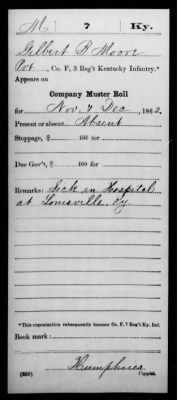 M 7 Ky.
Gilbert B Moore
Pvt, Co. F, 3 Reg't Kentucky Infantry.*
Appears on
Company Muster Roll
for Nov. & Dec, 1862.
Present or absent Absent
Stoppage, $ 100 for
Due Gov't, $ 100 for
Remarks: Sick in Hospital
at Louisville, Ky
*This organization subsequently became Co. F, 7 Reg't Ky. Inf.
Book mark:
Humphries
(858) Copyist.